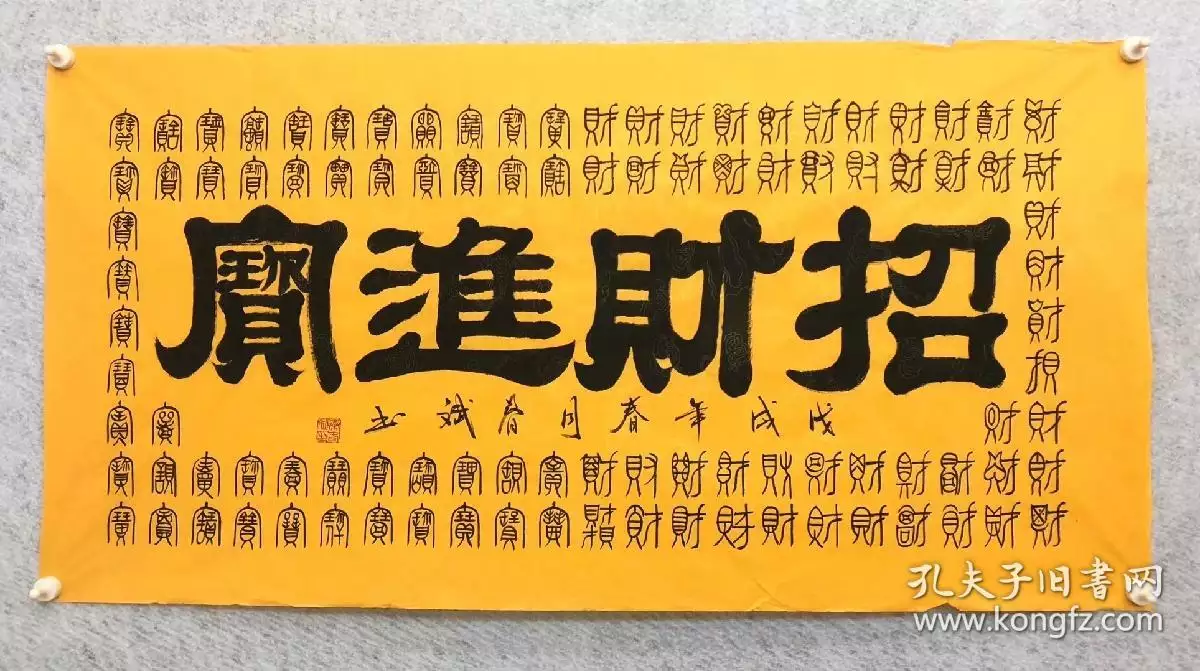 財財財財財財財財財財財寶寶寶寶寶寶寶寶寶寶寶
財財財財財財財財財財財寶寶寶寶寶寶寶寶寶寶寶
財財財財
招財進寶
寶寶寶寶
財財
戊戌年春月春斌书
寶寶
財財財財財財財財財財財寶寶寶寶寶寶寶寶寶寶寶
財財財財財財財財財財財寶寶寶寶寶寶寶寶寶寶寶
孔夫子旧書网
www.kongfz.com